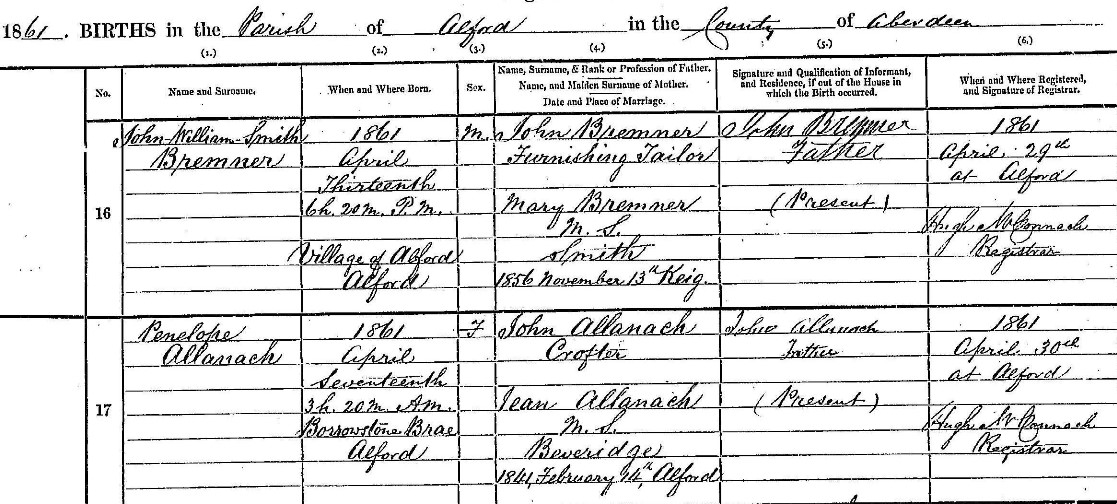 1861. BIRTHS in the Parish of Alford in the County of Aberdeen
(1.) (2.) (3.) (4.) (5.) (6.)
No.
Name and Surname.
When and Where Born.
Sex.
Name, Surname, & Rank or Profession of Father.
Name, and Maiden Surname of Mother.
Date and Place of Marriage.
Signature and Qualification of Informant,
and Residence, if out of the House in
which the Birth occurred.
When and Where Registered,
and Signature of Registrar.
16
John William Smith
Bremner
1861
April
Thirteenth
6h. 20m. P.M.
Village of Alford
Alford
M.
John Bremner
Furnishing Tailor
Mary Bremner
M. S.
Smith
1856 November 13th Keig.
John Bremner
Father
(Present)
1861
April 29th
at Alford
Hugh McConnach
Registrar
17
Penelope
Allanach
1861
April
Seventeenth
3h. 20m. A.M.
Borrowstone Brae
Alford
F
John Allanach
Crofter
Jean Allanach
M. S.
Beveridge
1841, February 14th, Alford
John Allanach
Father
(Present)
1861
April 30th
at Alford
Hugh McConnach
Registrar